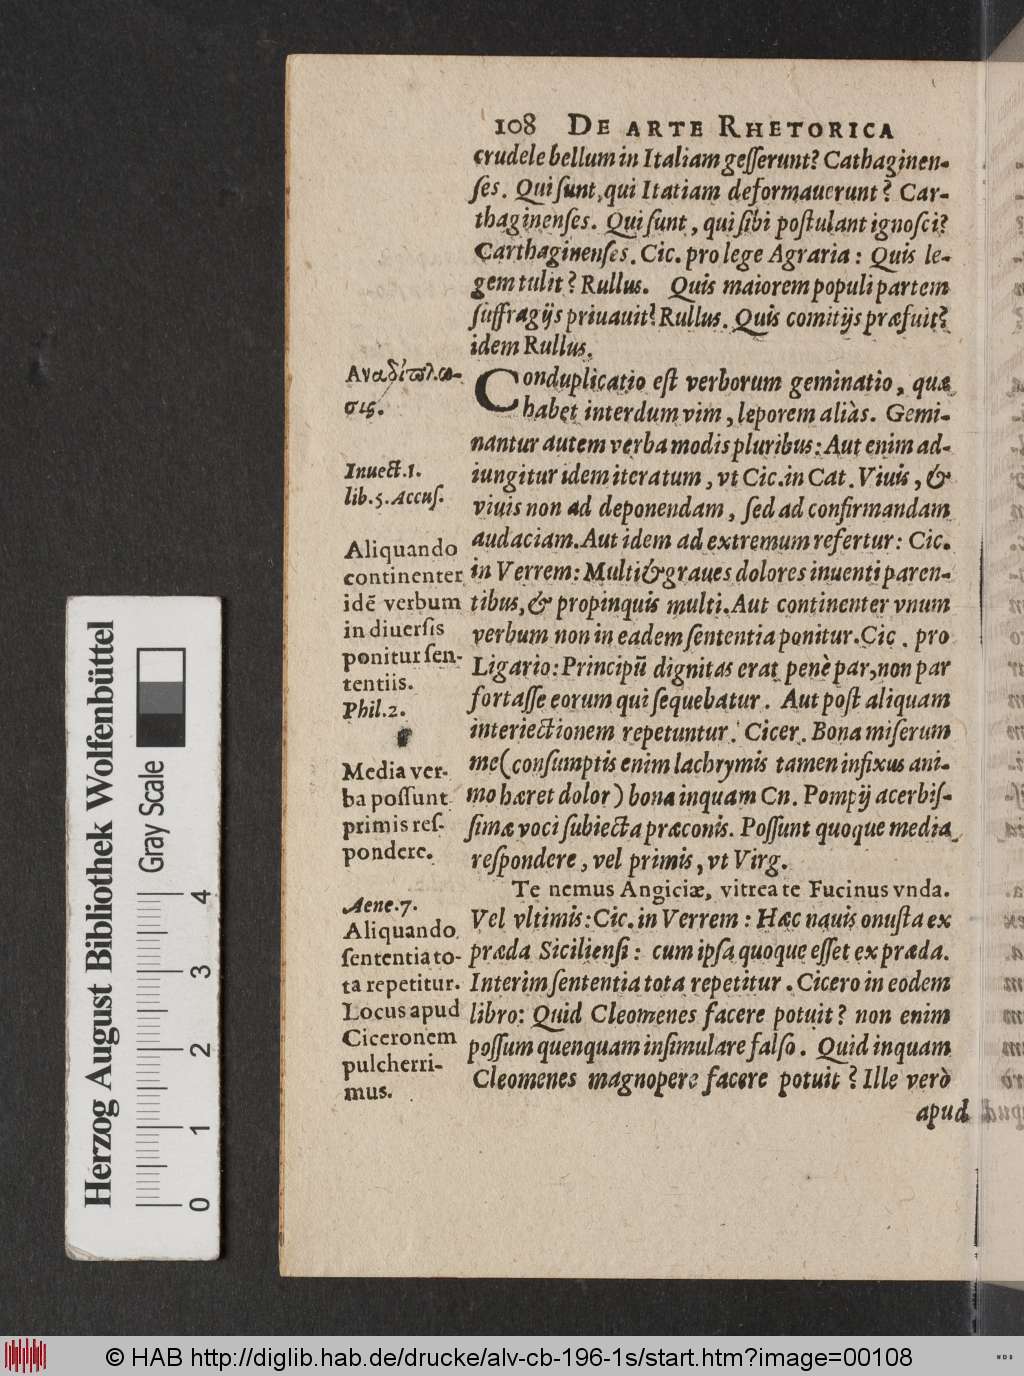 108 DE ARTE RHETORICA
crudele bellum in Italiam geſſerunt? Cathaginen-
ſes. Qui ſunt, qui Itatiam deformauerunt? Car-
thaginenſes. Qui ſunt, qui ſibi poſtulant ignoſci?
Carthaginenſes. Cic. pro lege Agraria: Quis le-
gem tulit? Rullus. Quis maiorem populi partem
ſuffragijs priuauit? Rullus. Quis comitijs præfuit?
idem Rullus.
Αναδίπλω-
σις.
Conduplicatio eſt verborum geminatio, quæ
habet interdum vim, leporem aliàs. Gemi-
nantur autem verba modis pluribus: Aut enim ad-
iungitur idem iteratum, vt Cic. in Cat. Viuis, &
viuis non ad deponendam, ſed ad confirmandam
audaciam. Aut idem ad extremum refertur: Cic.
in Verrem: Multi & graues dolores inuenti paren-
tibus, & propinquis multi. Aut continenter vnum
verbum non in eadem ſententia ponitur. Cic. pro
Ligario: Principū dignitas erat penè par, non par
fortaſſe eorum qui ſequebatur. Aut poſt aliquam
interiectionem repetuntur. Cicer. Bona miſerum
me (conſumptis enim lachrymis tamen infixus ani-
mo hæret dolor) bona inquam Cn. Pompij acerbiſ-
ſimæ voci ſubiecta præconis. Poſſunt quoque media
reſpondere, vel primis, vt Virg.
Te nemus Angiciæ, vitrea te Fucinus vnda.
Vel vltimis: Cic. in Verrem: Hæc nauis onuſta ex
præda Sicilienſi: cum ipſa quoque eſſet ex præda.
Interim ſententia tota repetitur. Cicero in eodem
libro: Quid Cleomenes facere potuit? non enim
poſſum quenquam inſimulare falſo. Quid inquam
Cleomenes magnopere facere potuit? Ille verò
apud
Inuect.1.
lib.5.Accuſ.
Aliquando
continenter
idē verbum
in diuerſis
ponitur ſen-
tentiis.
Phil.2.
Media ver-
ba poſſunt
primis reſ-
pondere.
Aene.7.
Aliquando
ſententia to-
ta repetitur.
Locus apud
Ciceronem
pulcherri-
mus.
Herzog August Bibliothek Wolfenbüttel
Gray Scale
0 1 2 3 4
© HAB http://diglib.hab.de/drucke/alv-cb-196-1s/start.htm?image=00108